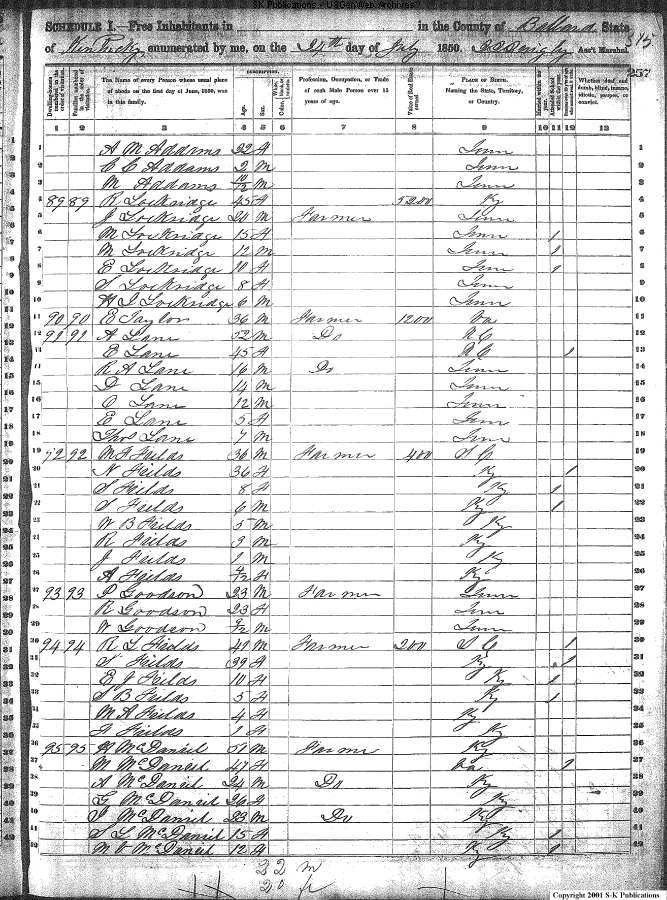 SK Publications - USGenWeb Archives
SCHEDULE I.—Free Inhabitants in in the County of Ballard State
of Kentucky enumerated by me, on the 24th day of July 1850. Ass't Marshal. 345
257
Dwelling-houses numbered in the order of visitation.
Families numbered in the order of visitation.
The Name of every Person whose usual place of abode on the first day of June, 1850, was in this family.
DESCRIPTION.
Age.
Sex.
Color, White, black, or mulatto.
Profession, Occupation, or Trade of each Male Person over 15 years of age.
Value of Real Estate owned.
PLACE OF BIRTH. Naming the State, Territory, or Country.
Married within the year.
Attended School within the year.
Persons over 20 y'rs of age who cannot read & write.
Whether deaf and dumb, blind, insane, idiotic, pauper, or convict.
1 2 3 4 5 6 7 8 9 10 11 12 13
1 A M Addams 22 f Tenn 1
2 C C Addams 2 M Tenn 2
3 M Addams 10/12 M Tenn 3
4 89 89 R Lockridge 45 f 5200 Ky 4
5 J Lockridge 20 M Farmer Tenn 5
6 M Lockridge 15 f Tenn 1 6
7 M Lockridge 12 M Tenn 1 7
8 E Lockridge 10 f Tenn 1 8
9 S Lockridge 8 f Tenn 9
10 H J Lockridge 6 M Tenn 10
11 90 90 E Taylor 36 M Farmer 1200 Va 11
12 91 91 A Lane 52 M Do N C 12
13 E Lane 45 f N C 1 13
14 R A Lane 16 M Do Tenn 14
15 D Lane 14 M Tenn 15
16 C Lane 12 M Tenn 16
17 E Lane 5 f Tenn 17
18 Thos Lane 7 M Tenn 18
19 92 92 M F Fields 36 M Farmer 400 S C 19
20 N Fields 36 f Ky 1 20
21 S Fields 8 f Ky 1 21
22 S Fields 6 M Ky 1 22
23 W B Fields 5 M Ky 23
24 R Fields 3 M Ky 24
25 J Fields 1 M Ky 25
26 A Fields 4/12 f Ky 26
27 93 93 P Goodson 23 M Farmer Tenn 27
28 R Goodson 23 f Tenn 28
29 W Goodson 9/12 M Tenn 29
30 94 94 R L Fields 41 M Farmer 200 S C 1 30
31 S Fields 39 f Ky 1 31
32 E J Fields 10 f Ky 1 32
33 S B Fields 5 f Ky 1 33
34 M A Fields 4 f Ky 34
35 F Fields 1 f Ky 35
36 95 95 H McDaniel 51 M Farmer Ky 36
37 M McDaniel 47 f Va 1 37
38 A McDaniel 24 M Do Ky 38
39 G McDaniel 26 f Ky 39
40 P McDaniel 23 M Do Ky 40
41 S L McDaniel 15 f Ky 1 41
42 M McDaniel 12 f Ky 1 42
22 m
20 f
Copyright 2001 S-K Publications